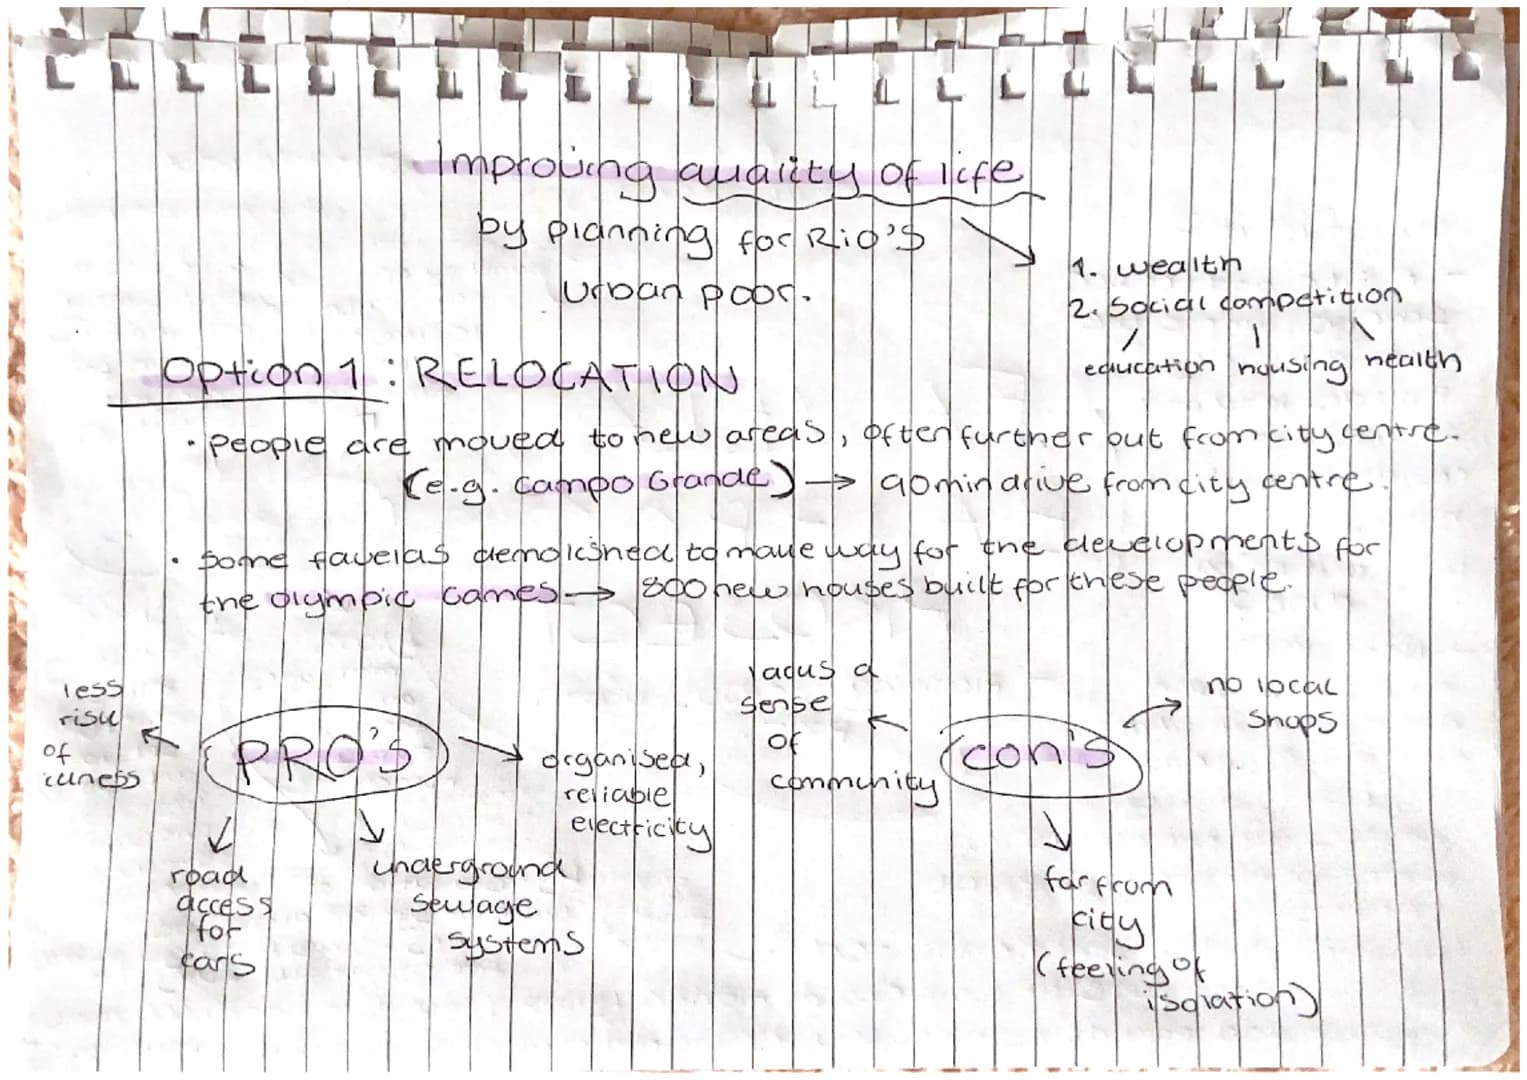 Improving quality of life
by planning for Rio's
Urban poor.
1. wealth
2. social competition
education housing health
Option 1 : RELOCATION
• People are moved to new areas, often further out from city centre.
(e.g. Campo Grande) → 90 min drive from city centre.
• Some favelas demolished to make way for the developments for
the Olympic Games → 800 new houses built for these people.
PRO'S
less
risk
of
illness
road
access
for
cars
underground
sewage
systems
organised,
reliable
electricity
con's
lacks a
sense
of
community
no local
shops
far from
city
(feeling of
isolation)